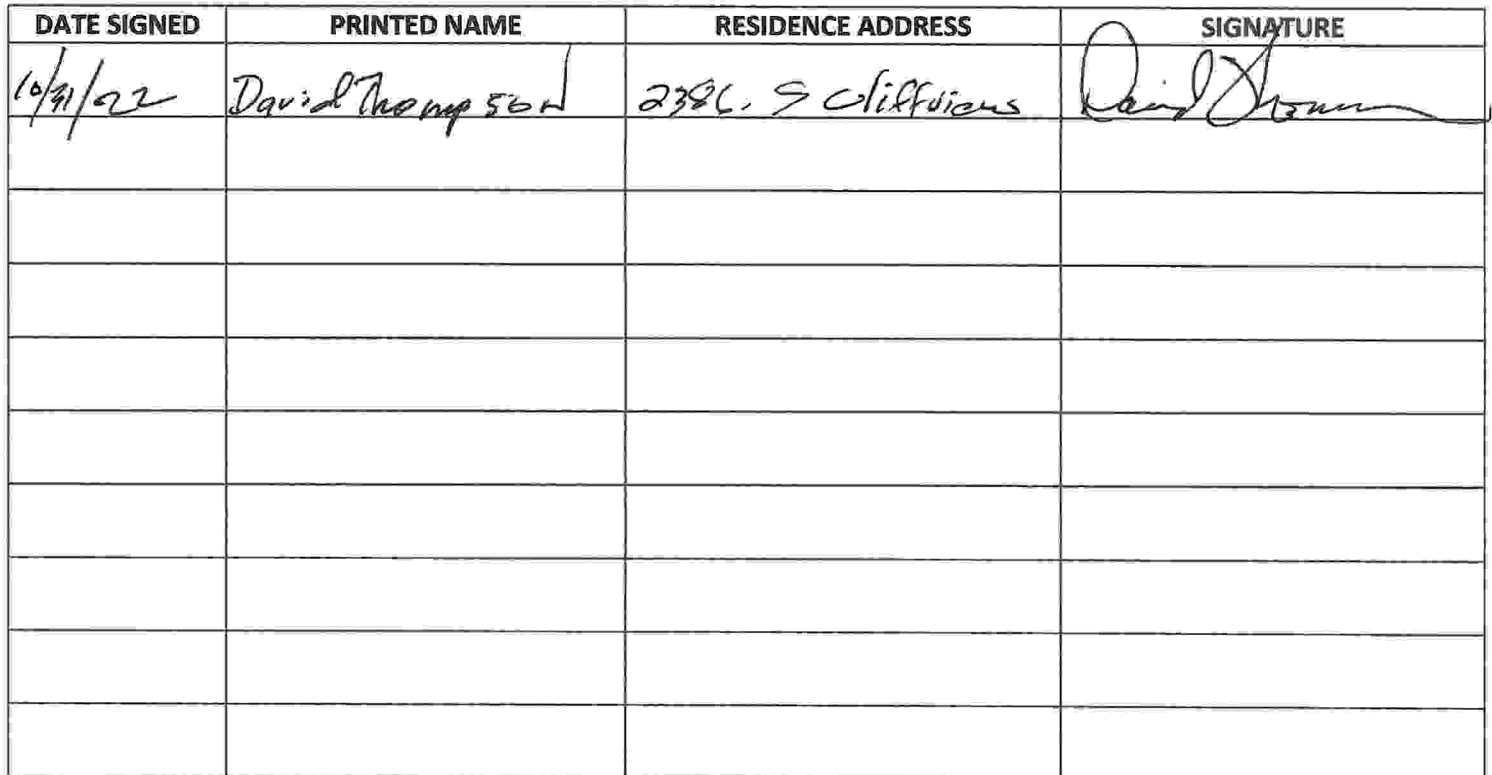 DATE SIGNED PRINTED NAME RESIDENCE ADDRESS SIGNATURE
10/31/22 David Thompson 2386. S Cliffviews David Thomson